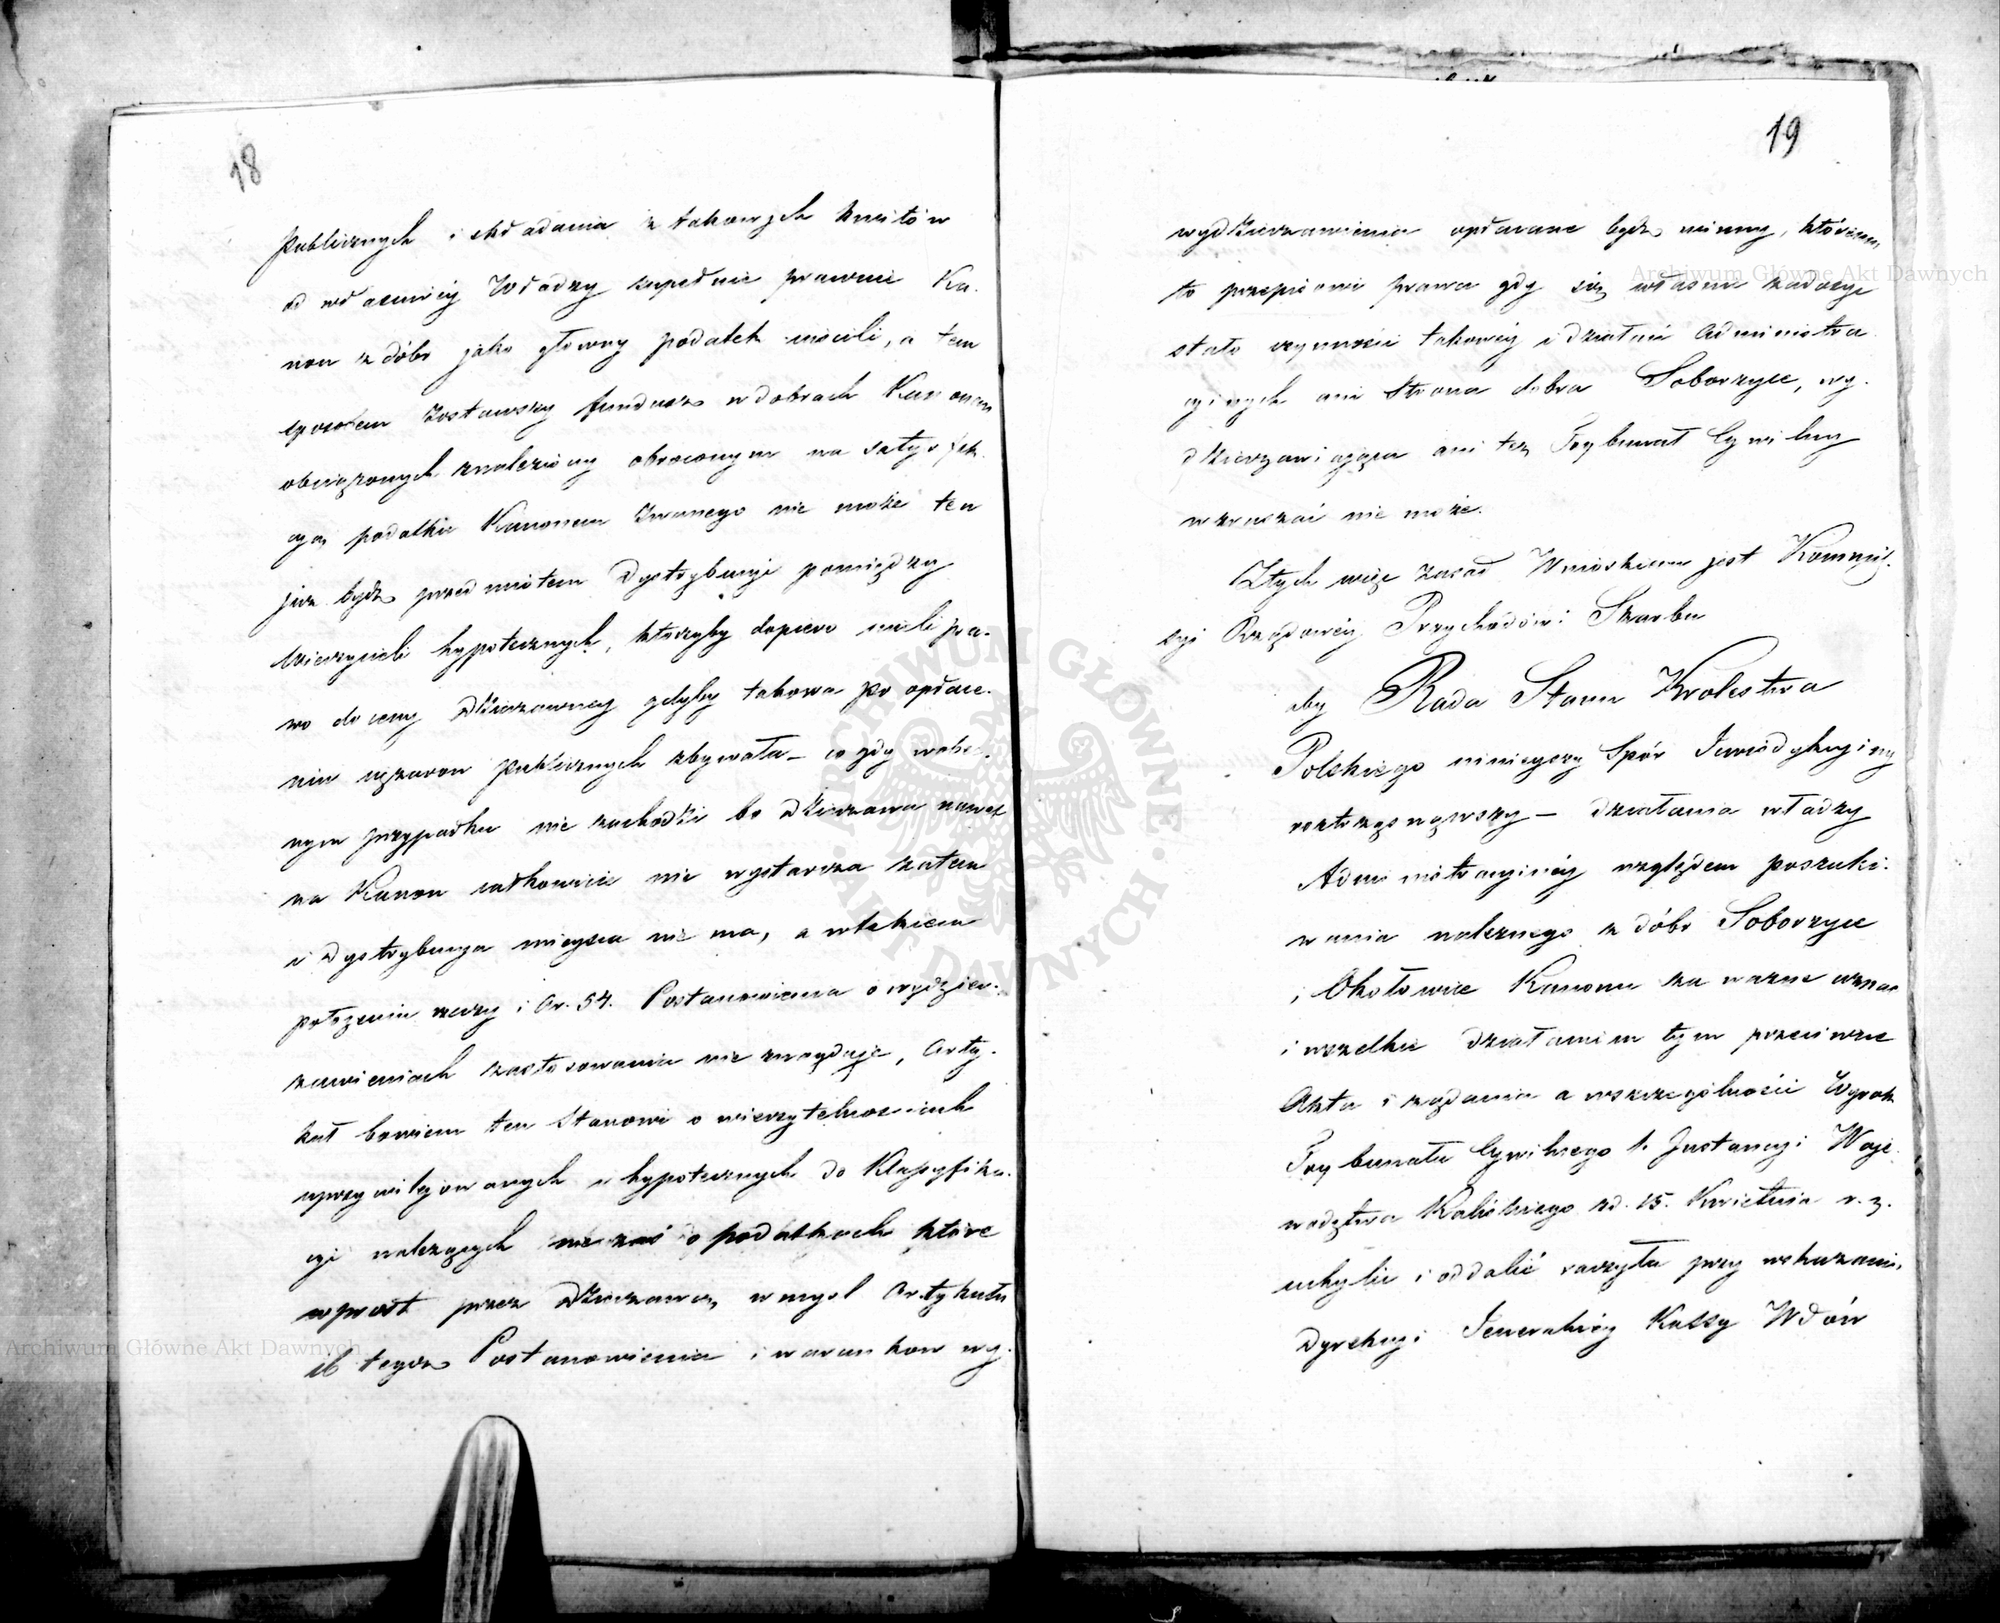 18
Publicznych i składania z takowych kwitów
od właściwey Władzy zupełnie prawnie Ka-
non z dóbr jako główny podatek uiścili, a tem
sposobem zostawszy fundusz w dobrach Kanonem
obciążonych znaleziony obroconym na satysfak-
cyą podatku Kanonem zwanego nie może ten
już bydź przedmiotem Dystrybucyi pomiędzy
Wierzycieli hypotecznych, którzyby dopiero mieli pra-
wo do ceny Dzierzawney gdyby takowa po opłace-
niu ciężarow Publicznych zbywała – co gdy w obec-
nym przypadku nie zachodzi bo Dzierzawa nawet
na Kanon całkowicie nie wystarcza zatem
i Dystrybucya mieysca nie ma, a w takiem
położeniu rzeczy i Ar. 54. Postanowienia o wydzier-
zawieniach zastosowania nie znayduje, Arty-
kuł bowiem ten Stanowi o wierzytelnościach
uprzywilejowanych i hypotecznych do Klassyfika-
cyi należących nie zaś o podatkach które
wprost przez Dzierzawcę w mysl Artykułu
16 tegoż Postanowienia i warunkow wy-
19
wydzierzawienia opłacane bydź winny, któremu
to przepisowi prawa gdy się właśnie zadosyć
stało czynności takowéy i działań Administra-
cyinych ani Strona dobra Soborzyce, wy-
dzierzawiająca ani też Trybunał Cywilny
wzruszać nie może.
Z tych więc zasad Wnioskiem jest Kommis-
syi Rządowéy Przychodów i Skarbu
aby Rada Stanu Krolestwa
Polskiego niniejszy Spór Jurisdykcyiny
roztrząsnąwszy – działania władzy
Administracyinéy względem poszuki-
wania należnego z dóbr Soborzyce
i Okołowice Kanonu za ważne uznać
i wszelkie działaniom tym przeciwne
Akta i żądania a w szczególności Wyrok
Trybunału Cywilnego 1. Instancyi Woje-
wodztwa Kaliskiego z d. 15. Kwietnia r. z.
uchylić i oddalić raczyła przy wskazaniu
Dyrekcyi Jeneralnéy Kassy Wdów
Archiwum Główne Akt Dawnych
Archiwum Główne Akt Dawnych
ARCHIWUM GŁÓWNE · AKT DAWNYCH ·